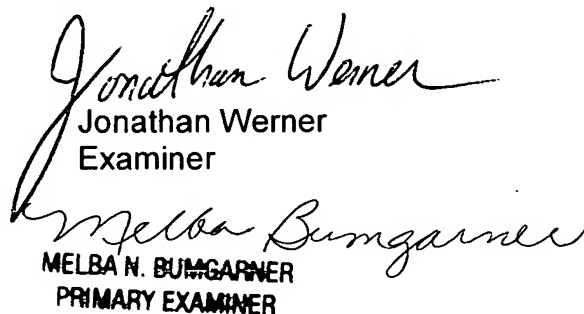 Jonathan Werner
Jonathan Werner
Examiner
Melba Bumgarner
MELBA N. BUMGARNER
PRIMARY EXAMINER